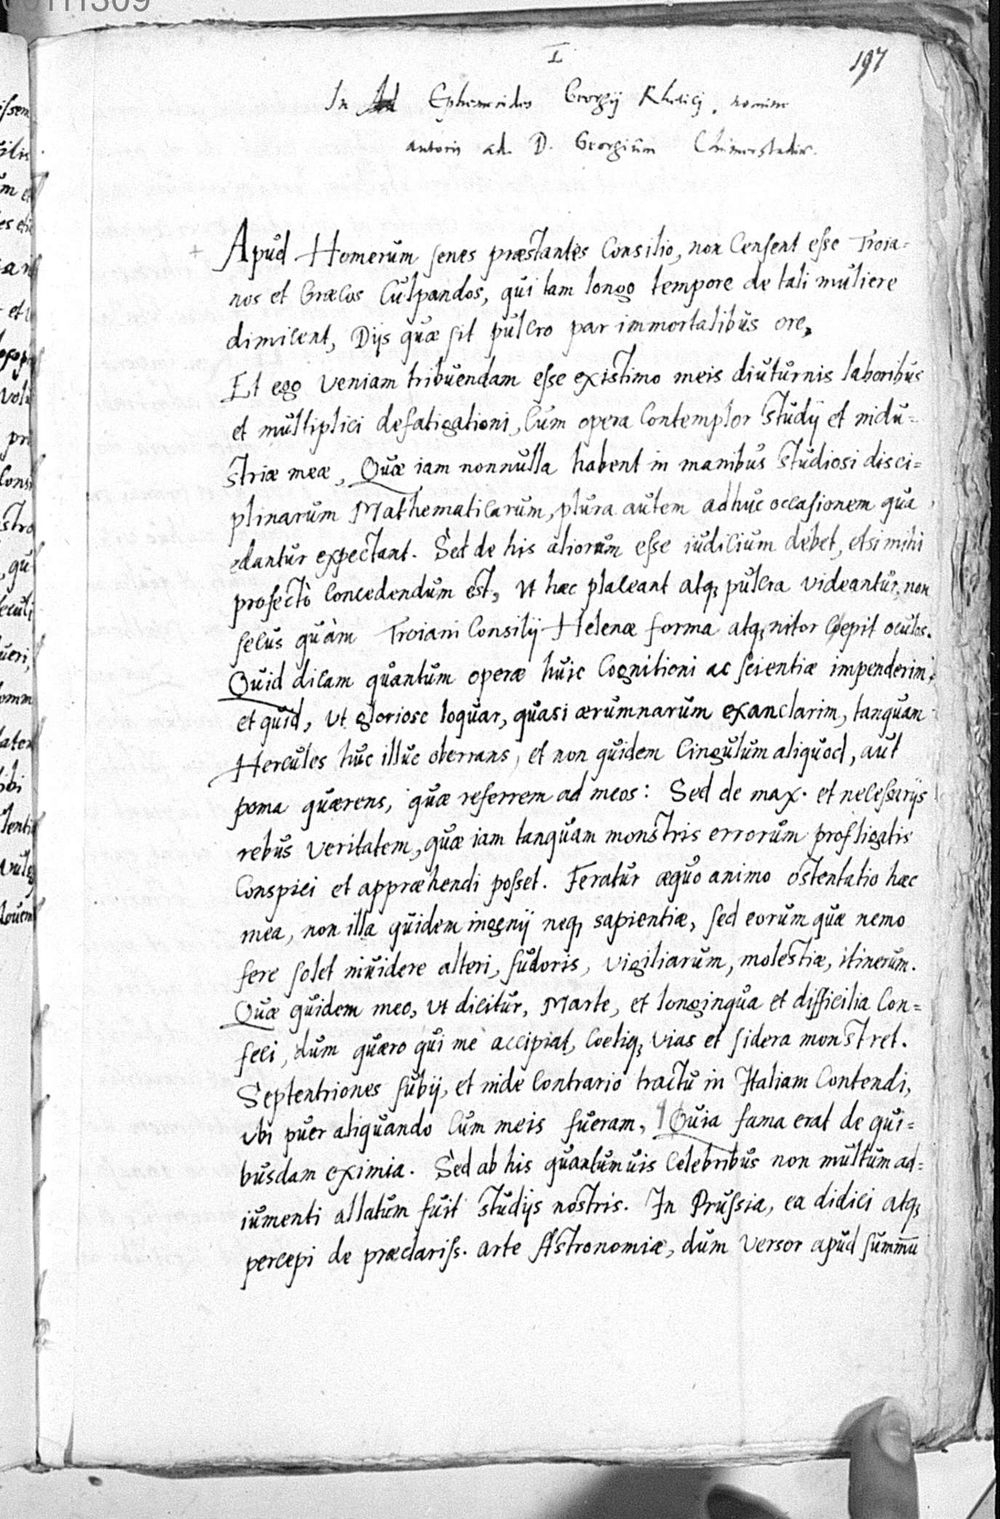 I
197
In Ephemerides Georgij Rhetici, nomine
autoris ad D. Georgium
+ Apud Homerum senes præstantes Consilio, non Censent esse Troia=
nos et Græcos Culpandos, qui tam longo tempore de tali muliere
dimicent, Dijs quæ sit pulcro par immortalibus ore,
Et ego veniam tribuendam esse existimo meis diuturnis laboribus
et multiplici defatigationi, Cum opera Contemplor studij et indu=
striæ meæ, Quæ iam nonnulla habent in manibus studiosi disci=
plinarum Mathematicarum, plura autem adhuc occasionem qua
edantur expectant. Sed de his aliorum esse iudicium debet, etsi mihi
profectò Concedendum est, Vt hæc placeant atq; pulcra videantur, non
secus quàm Troiani Consilij Helenæ forma atq; nitor Cœpit oculos.
Quid dicam quantum operæ huic Cognitioni ac scientiæ impenderim,
et quid, vt gloriose loquar, quasi ærumnarum exanclarim, tanquam
Hercules huc illuc oberrans, et non quidem Cingulum aliquod, aut
poma quærens, quæ referrem ad meos: Sed de max. et necessarijs
rebus veritatem, quæ iam tanquam monstris errorum profligatis
Conspici et appræhendi posset. Feratur æquo animo ostentatio hæc
mea, non illa quidem ingenij neq; sapientiæ, sed eorum quæ nemo
fere solet inuidere alteri, sudoris, vigiliarum, molestiæ, itinerum.
Quæ quidem meo, vt dicitur, Marte, et longinqua et difficilia Con=
feci, dum quæro qui me accipiat, Coeliq; vias et sidera monstret.
Septentriones subij, et inde Contrario tractu in Italiam Contendi,
vbi puer aliquando Cum meis fueram, Quia fama erat de qui=
busdam eximia. Sed ab his quantumuis Celebribus non multum ad=
iumenti allatum fuit studijs nostris. In Prussia, ea didici atq;
percepi de præclariss. arte Astronomiæ, dum versor apud summū